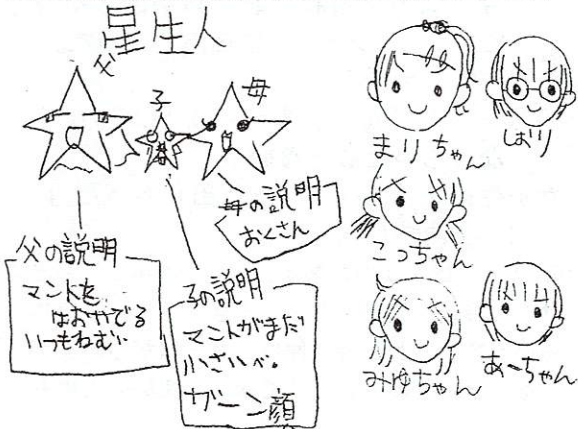 星生人
父
子
母
母の説明
おくさん
父の説明
マントを
はおやでる
いつもねむい
子の説明
マントがまだ
小さいべ。
ガーン顔
まりちゃん
しおり
こっちゃん
みゆちゃん
あーちゃん